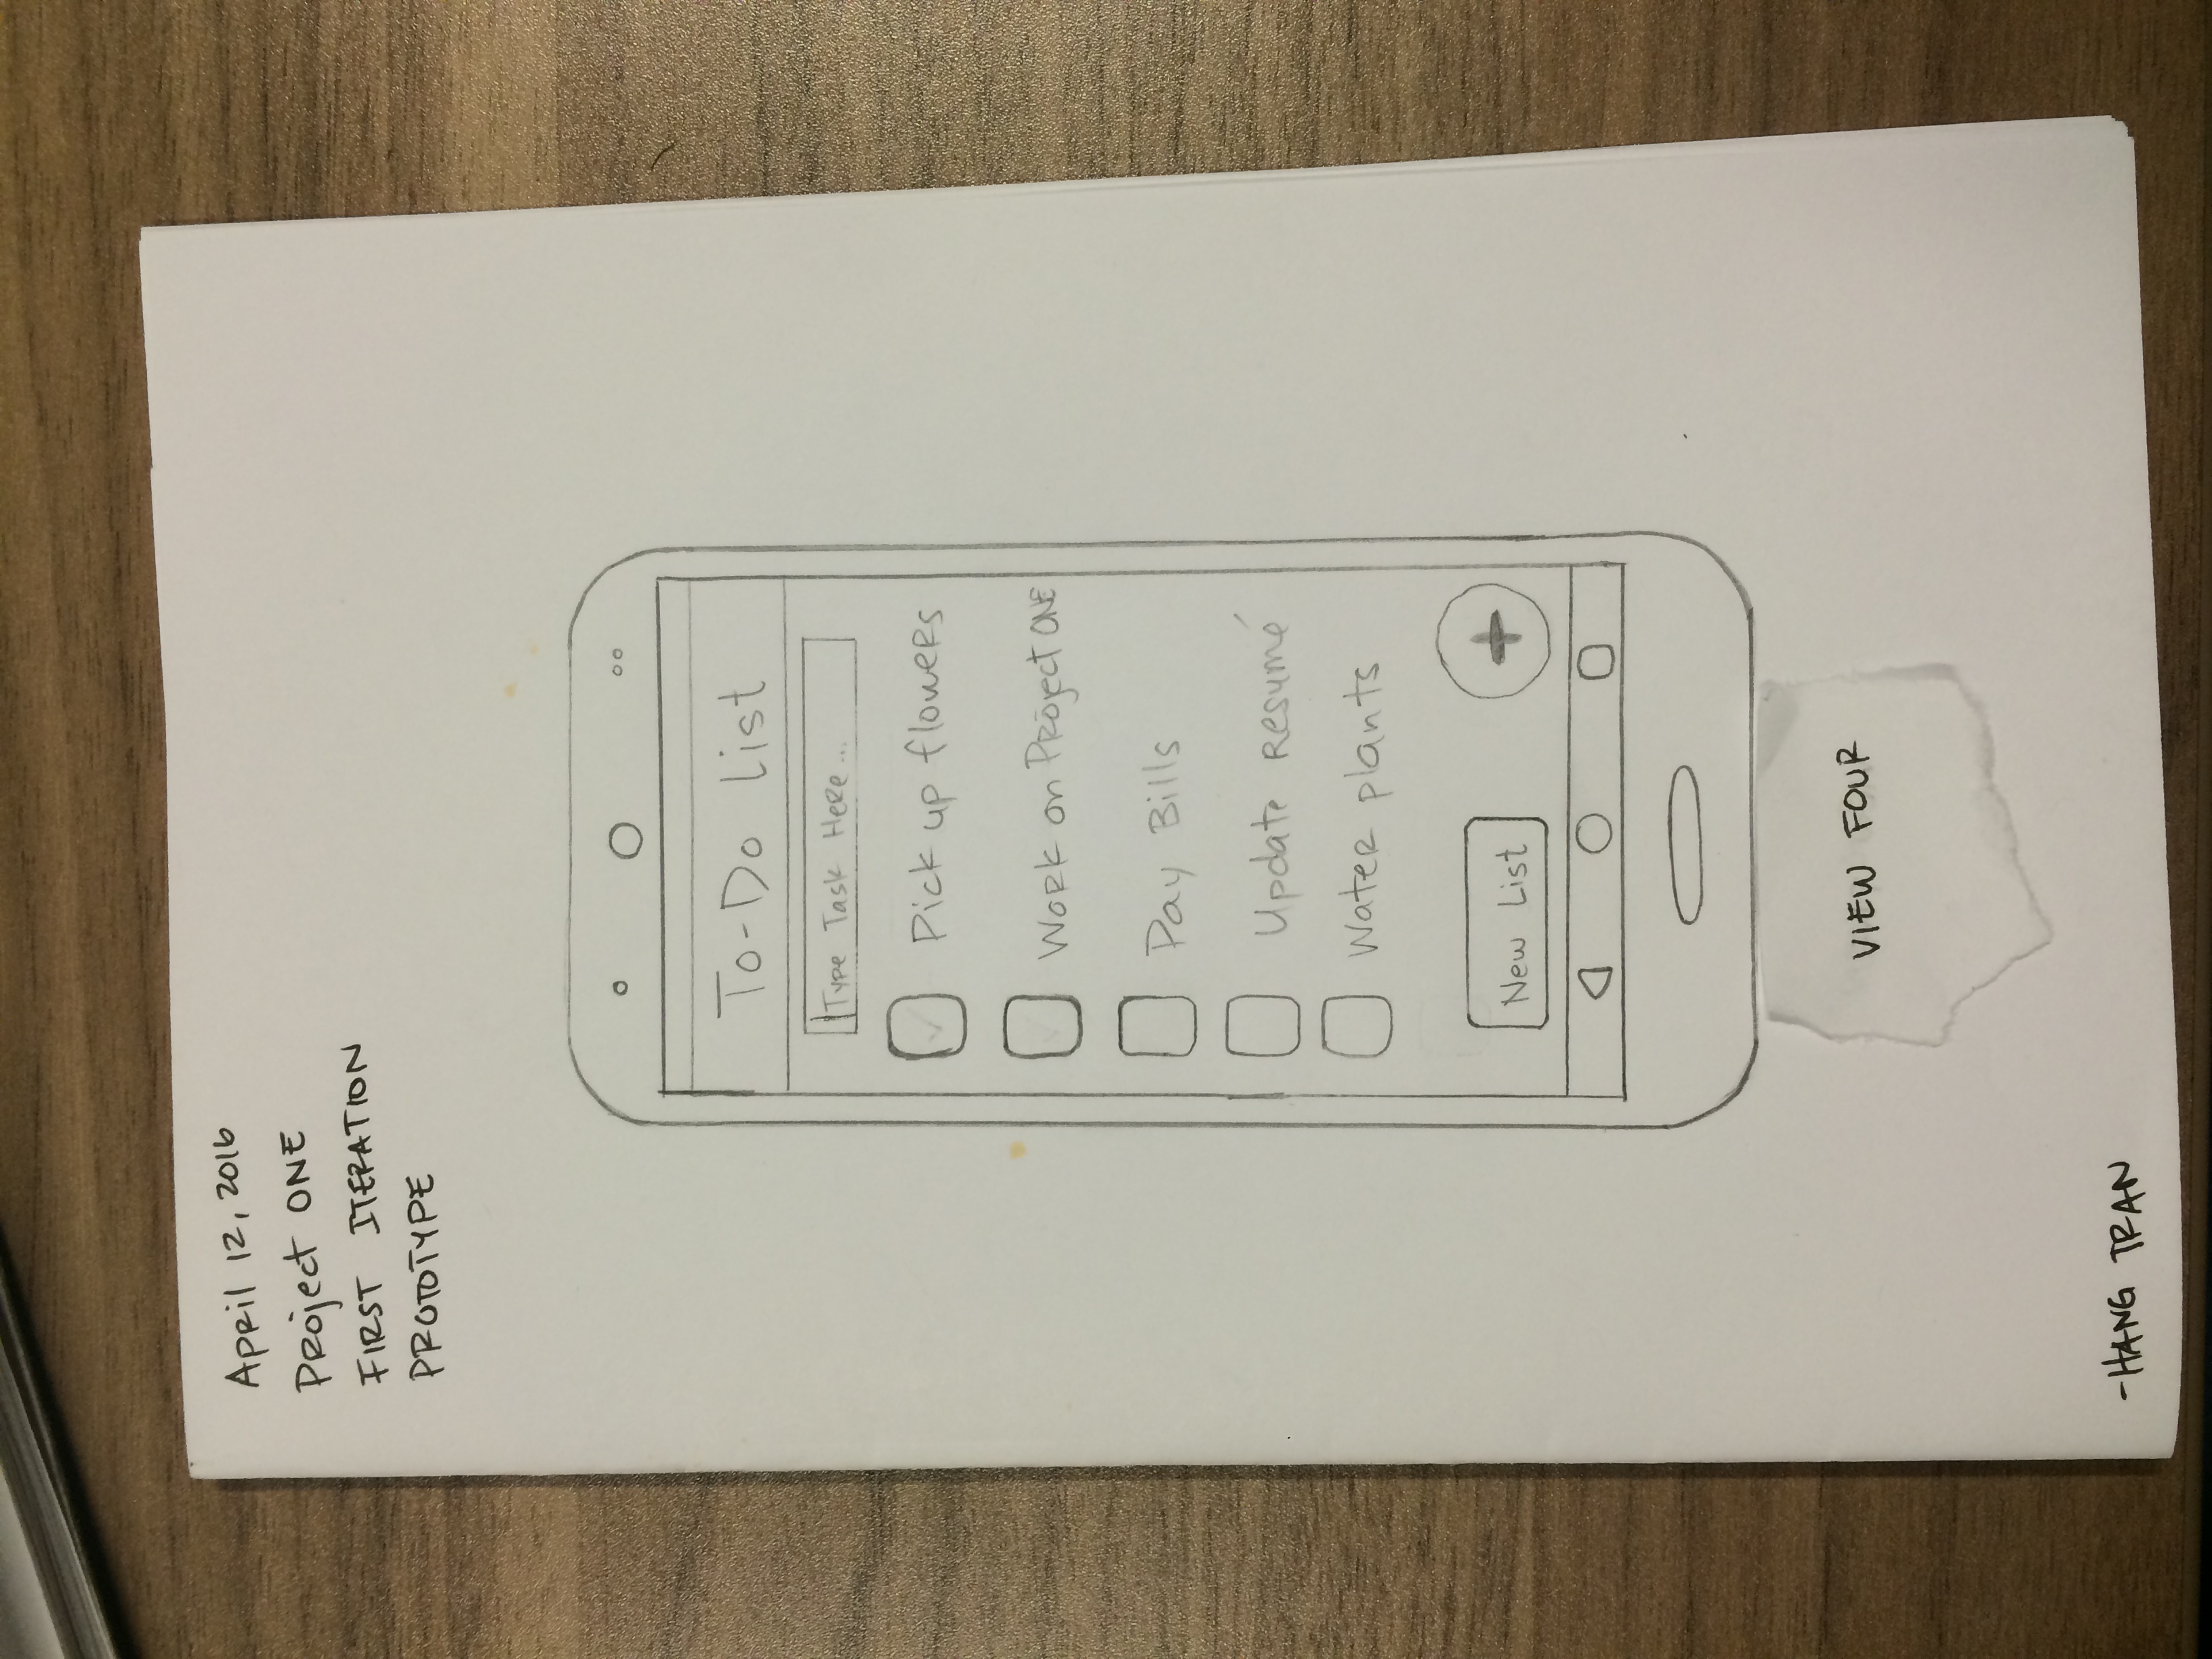 April 12, 2016
Project ONE
FIRST ITERATION
PROTOTYPE
To-Do List
Type Task Here ...
Pick up flowers
Work on Project ONE
Pay Bills
Update resumé
Water plants
New List
VIEW FOUR
-HANG TRAN